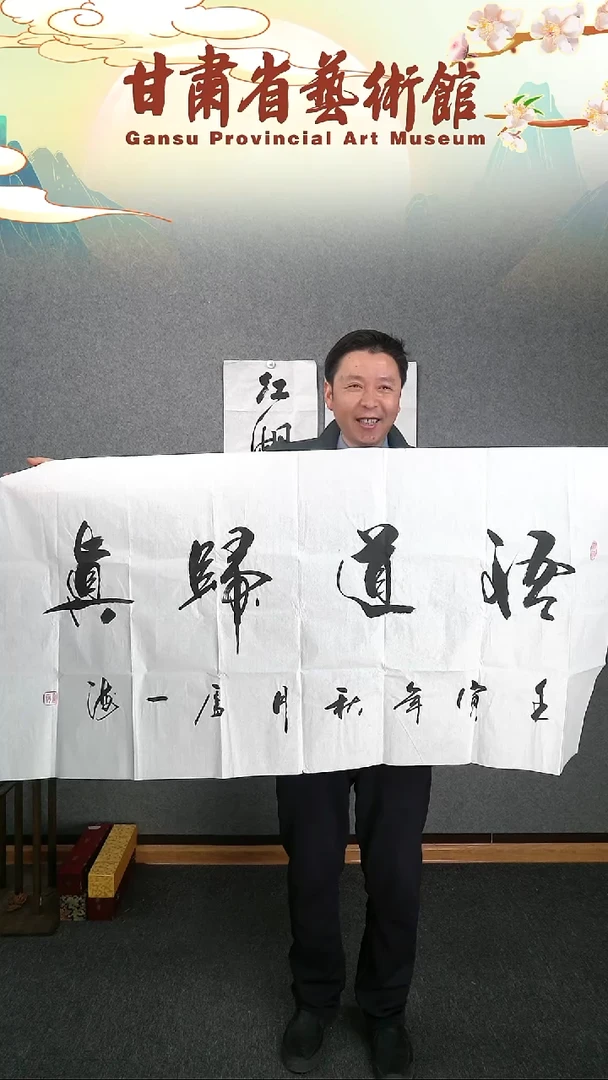 甘肅省藝術館
Gansu Provincial Art Museum
江湖
悟道歸真
壬寅年秋月 一海